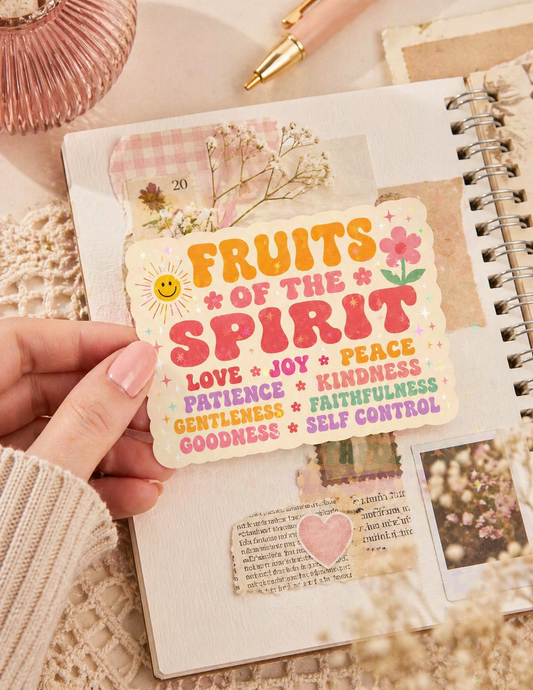 20
FRUITS
OF THE
SPIRIT
LOVE JOY PEACE
PATIENCE KINDNESS
GENTLENESS FAITHFULNESS
GOODNESS SELF CONTROL